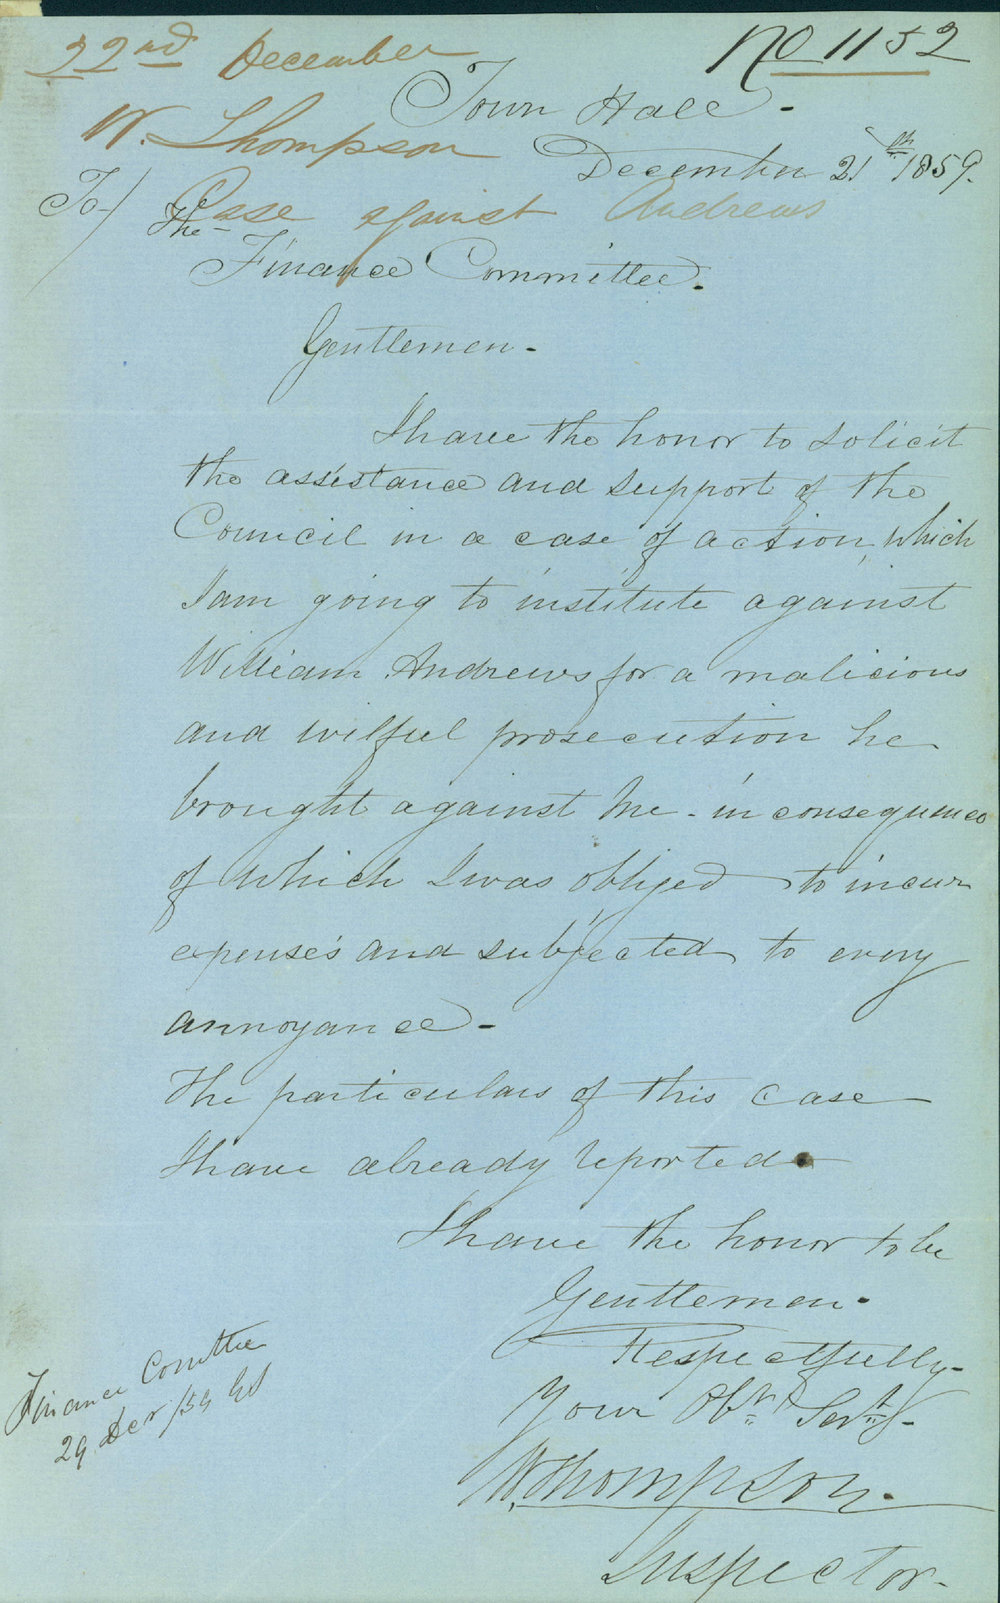 22nd December
No 1152
W. Thompson
Town Hall -
December 21th 1859.
Case against Andrews
To/
The
Finance Committee.
Gentlemen -
I have the honor to solicit
the assistance and support of the
Council in a case of action, which
I am going to institute against
William Andrews for a malicious
and wilful prosecution he
brought against me - in consequence
of which I was obliged to incur
expenses and subjected to every
annoyance -
The particulars of this case
I have already reported.
I have the honor to be
Gentlemen.
Respectfully -
Your Obt Servt -
W. Thompson.
Inspector.
Finance Comttee
29 Decr /59